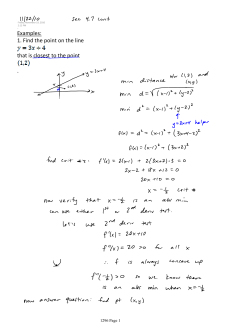 11/22/10
Sec 4.7 cont
Examples:
1. Find the point on the line
y = 3x + 4
that is closest to the point
(1,2)
y
y=3x+4
(1,2)
x
min distance btw (1,2) and (x,y)
min d = √((x-1)² + (y-2)²)
min d² = (x-1)² + (y-2)²
y=3x+4 helper
f(x) = d² = (x-1)² + (3x+4-2)²
f(x) = (x-1)² + (3x+2)²
find crit #s: f'(x) = 2(x-1) + 2(3x+2)·3 = 0
2x-2 + 18x+12 = 0
20x+10 = 0
x = -½ crit #
now verify that x=-½ is an abs min
can use either 1st or 2nd deriv test.
let's use 2nd deriv test
f'(x) = 20x+10
f''(x) = 20 > 0 for all x
∴ f is always concave up
f''(-½) > 0 so we know there
is an abs min when x=-½
now answer question: find pt (x,y)
1396 Page 1